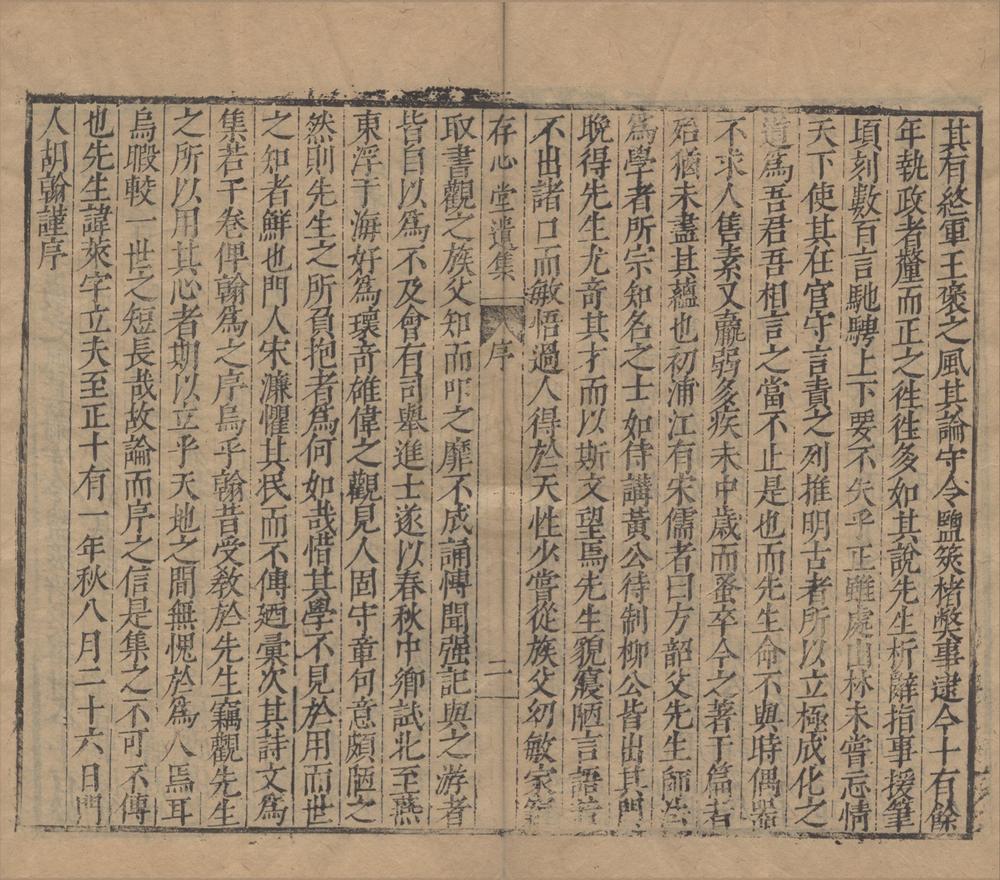 其有終軍王褒之風其論守令鹽筴楮幣事逮今十有餘
年執政者釐而正之徃徃多如其說先生析辭指事援筆
頃刻數百言馳騁上下要不失乎正雖處山林未嘗忘情
天下使其在官守言責之列推明古者所以立極成化之
道爲吾君吾相言之當不止是也而先生命不與時偶
不求人售素又羸弱多疾未中歲而蚤卒今之著于篇者
殆猶未盡其蘊也初浦江有宋儒者曰方韶父先生師
爲學者所宗知名之士如侍講黃公待制柳公皆出其門
晚得先生尤奇其才而以斯文望焉先生貌寢陋言語
不出諸口而敏悟過人得於天性少嘗從族父幼敏家
存心堂遺集 序 二
取書觀之族父知而叩之靡不成誦博聞强記與之游者
皆自以爲不及會有司舉進士遂以春秋中鄉試北至燕
東浮于海好爲瓌奇雄偉之觀見人固守章句意頗陋之
然則先生之所負抱者爲何如哉惜其學不見於用而世
之知者鮮也門人宋濂懼其泯而不傳廼彙次其詩文爲
集若干卷俾翰爲之序烏乎翰昔受敎於先生竊觀先生
之所以用其心者期以立乎天地之間無愧於爲人焉耳
烏暇較一世之短長哉故論而序之信是集之不可不傳
也先生諱萊字立夫至正十有一年秋八月二十六日門
人胡翰謹序